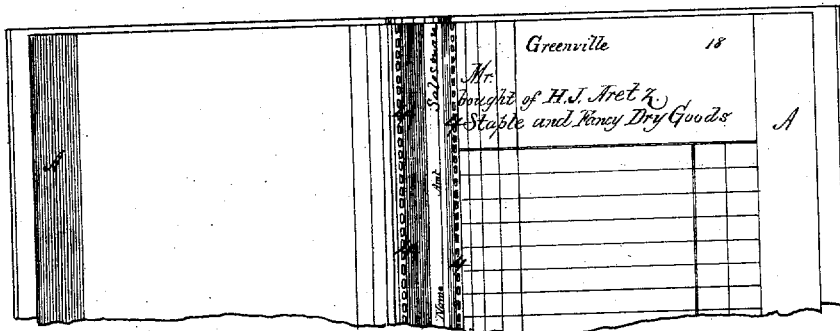 Greenville 18
Mr.
bought of H. J. Aretz.
Staple and Fancy Dry Goods
A
Salesman
Amt
Name